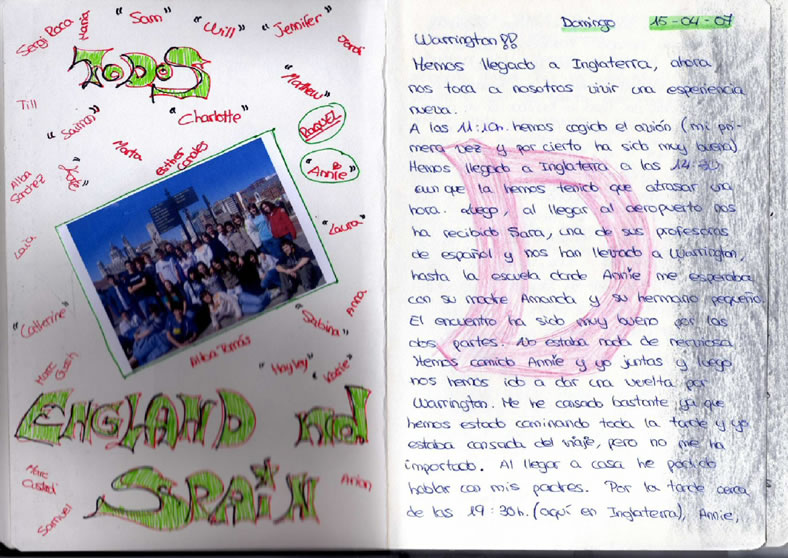 Sergi Roca
Maria
"Sam"
"Will"
"Jennifer"
Jordi
TODOS
"Matthew"
Till
"Saimon"
"Charlotte"
RAQUEL
Marta
Esther Canales
"Annie"
Alba Sánchez
Laia
"Laura"
"Catherine"
"Sabina"
Anna
Alba Tomás
Marc
"Hayley"
"Katie"
ENGLAND nd
SPAIN
Marc
Custodi
Samuel
Domingo 15-04-07
Warrington!!
Hemos llegado a Inglaterra, ahora
nos toca a nosotros vivir una experiencia
nueva.
A las 11:10h. hemos cogido el avión (mi pri-
mera vez y por cierto ha sido muy buena)
Hemos llegado a Inglaterra a las 14-30
aun que la hemos tenido que atrasar una
hora. Luego, al llegar al aeropuerto nos
ha recibido Sara, una de sus profesoras
de español y nos han llevado a Warrington,
hasta la escuela donde Annie me esperaba
con su madre Amanda y su hermano pequeño.
El encuentro ha sido muy bueno por las
dos partes. No estaba nada de nerviosa.
Hemos comido Annie y yo juntas y luego
nos hemos ido a dar una vuelta por
Warrington. Me he cansado bastante ya que
hemos estado caminando toda la tarde y yo
estaba cansada del viaje, pero no me ha
importado. Al llegar a casa he podido
hablar con mis padres. Por la tarde cerca
de las 19:30h. (aquí en Inglaterra), Annie,